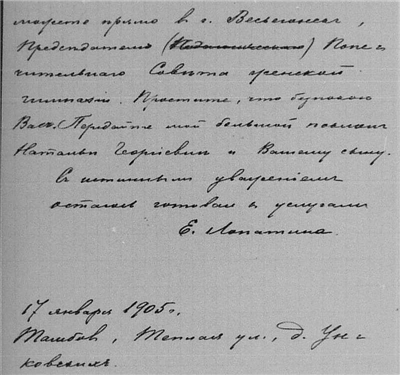 можете прямо в г. Весьегонскъ,
Председателю Попе-
чительнаго Совѣта женской
гимназiи. Простите, что безпокою
Васъ. Передайте мой большой поклонъ
Натальи Георгiевнѣ и Вашему сыну.
Съ истиннымъ уваженiемъ
остаюсь готовая къ услугамъ
Е. Лопатина.
17 января 1905 г.
Тамбовъ, Теплая ул., д. Ун-
ковскихъ.